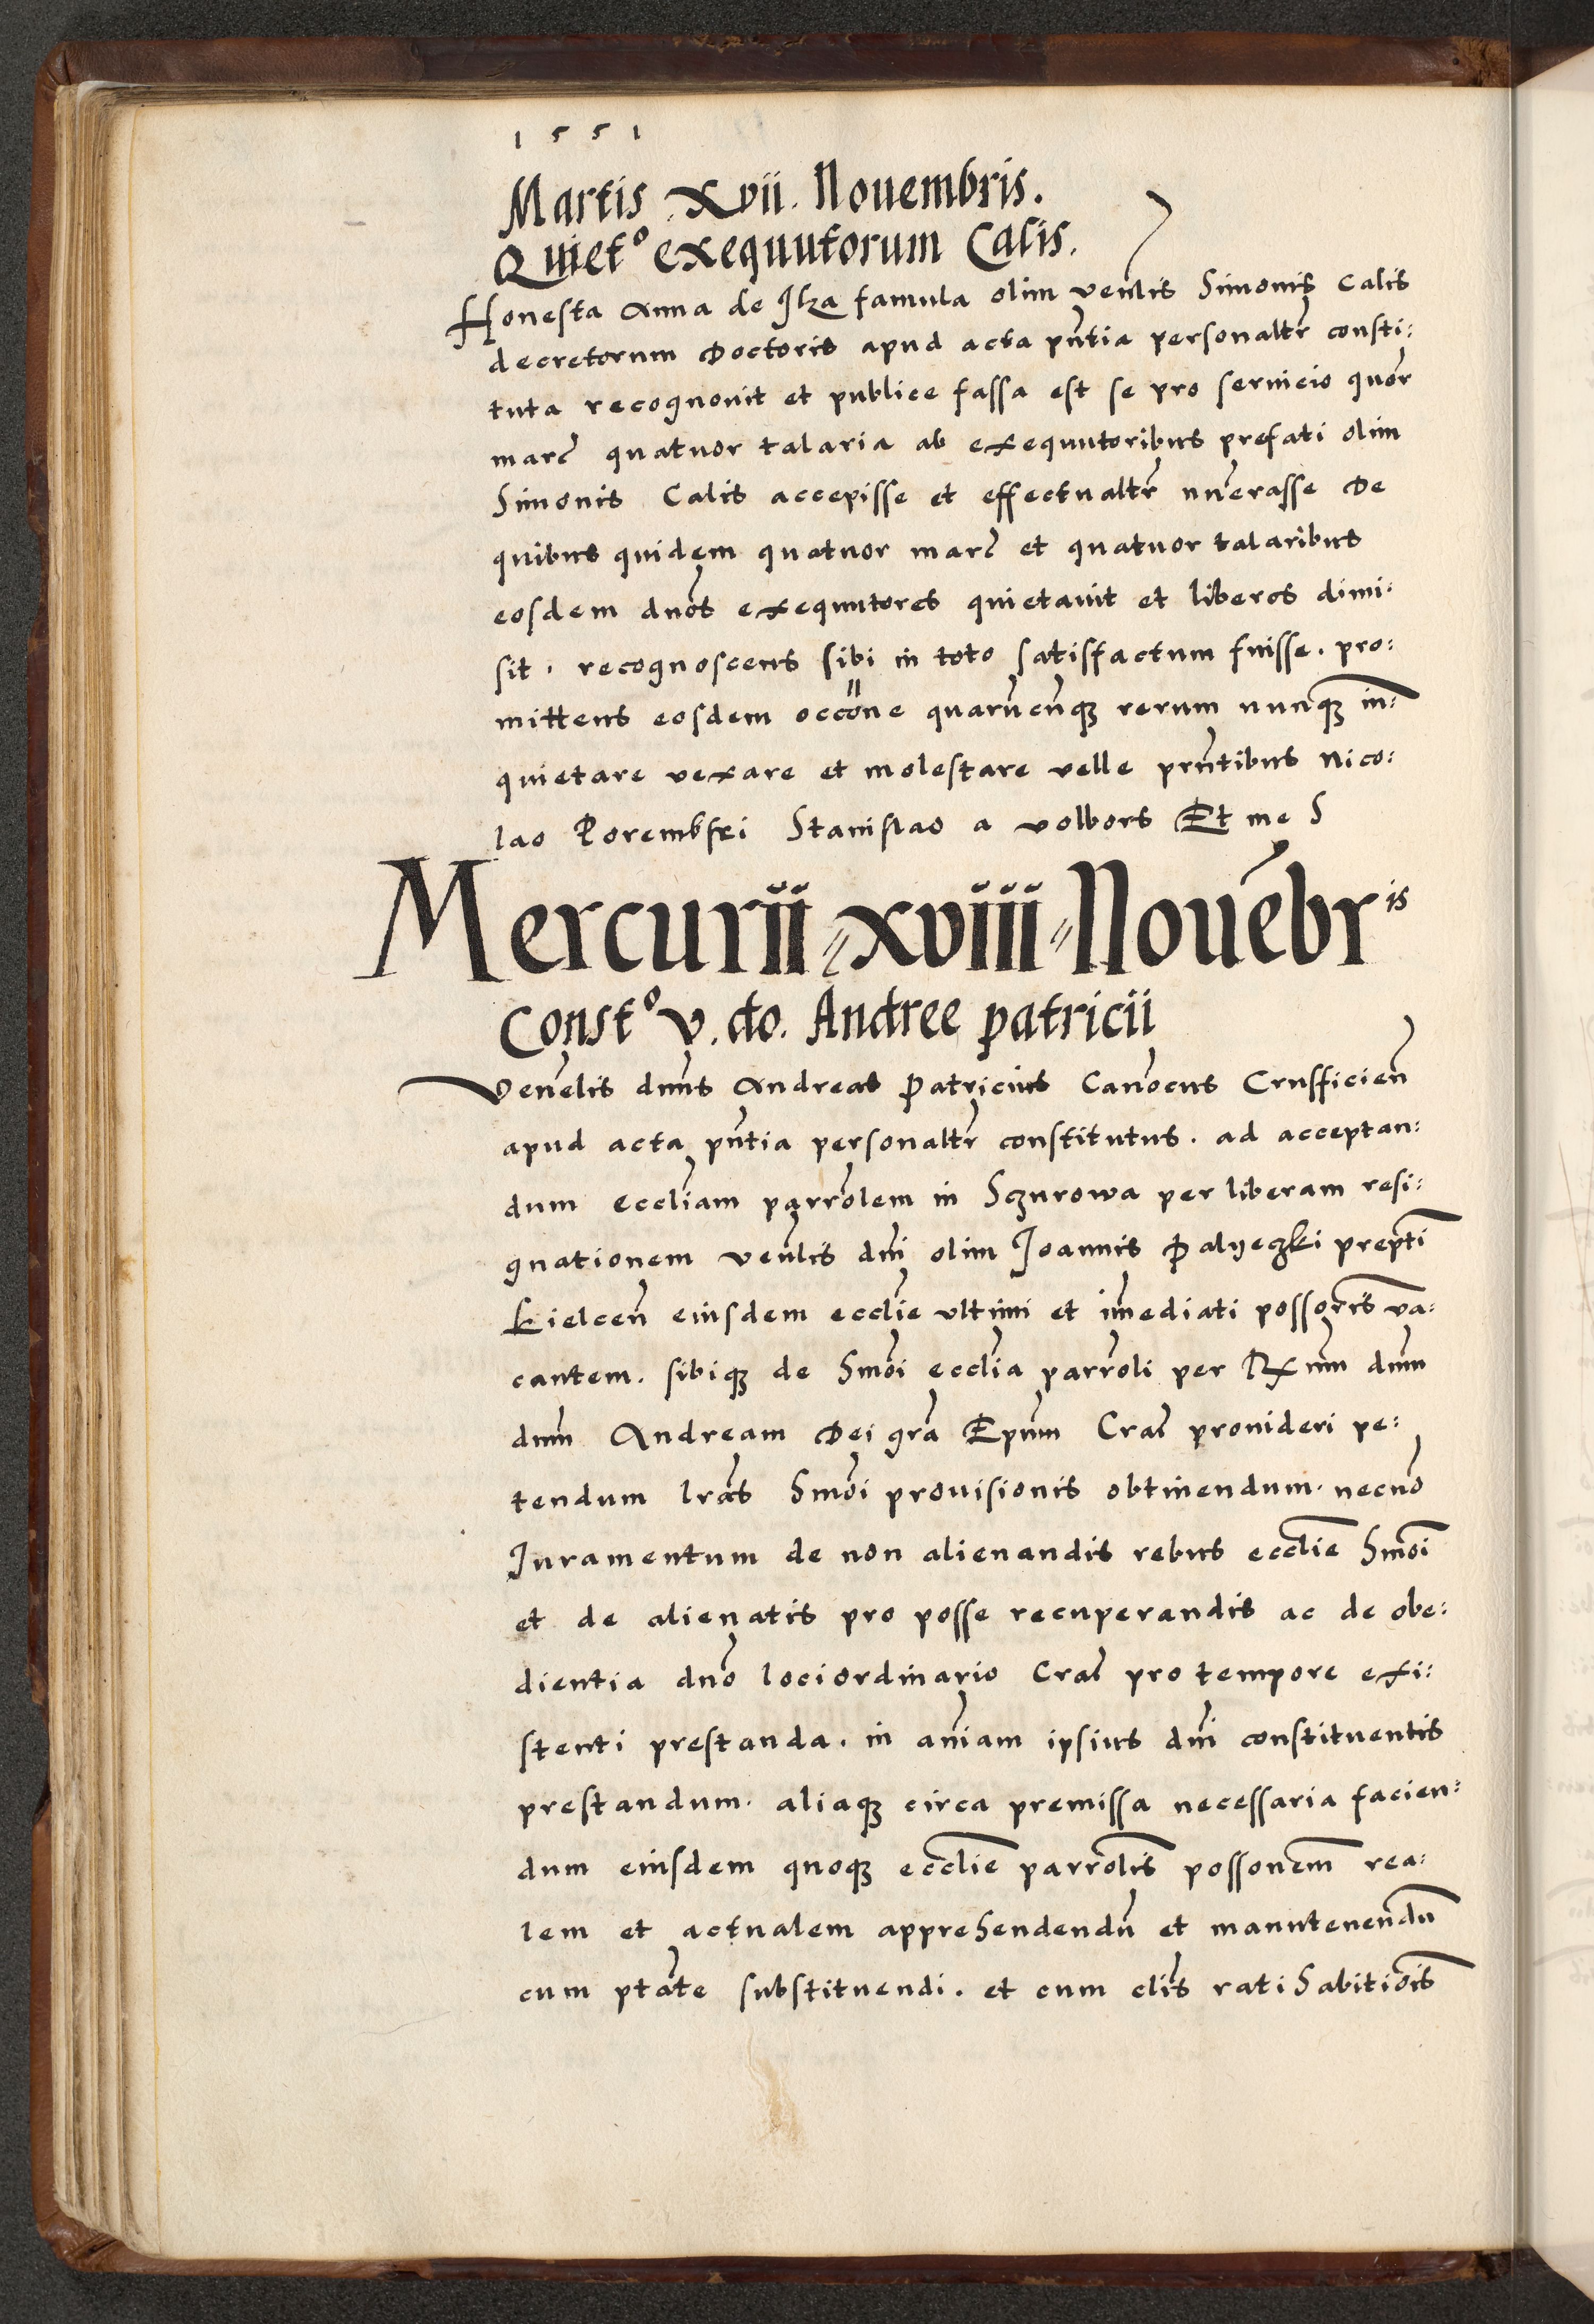 1551
Martis .xvii. Nouembris.
Quiet° exequutorum Calis.
Honesta Anna de Ilza famula olim venlis Simonis Calis
decretorum Doctoris apud acta pntia personaltr consti:
tuta recognouit et publice fassa est se pro seruicio quor
marc quatuor talaria ab exequutoribus prefati olim
Simonis Calis accepisse et effectualtr nuerasse De
quibus quidem quatuor marc et quatuor talaribus
eosdem dnos exequutores quietauit et liberos dimi:
sit . recognoscens sibi in toto satisfactum fuisse . pro:
mittens eosdem occone quarucunqз rerum nunqз in:
quietare vexare et molestare velle prntibus Nico:
lao Porembski Stanislao a volbors Et me S
Mercurii xviii Nouēbr is
Const° v. do. Andree patricii
Venelis dnns Andreas Patricius Canocus Crusficien
apud acta pntia personaltr constitutus . ad acceptan:
dum eccliam parrolem in Sczurowa per liberam resi:
gnationem venlis dni olim Joannis Palyeczki prepti
Kielcen eiusdem ecclie vltimi et imediati possoris va:
cantem . sibiqз de hmoi ecclia parroli per Rxmm dnm
dnm Andream Dei gra Epum Cral prouideri pe:
tendum lras hmoi prouisionis obtinendum . necno
Juramentum de non alienandis rebus ecclie hmoi
et de alienatis pro posse recuperandis ac de obe:
dientia dno lociordinario Cral pro tempore exi:
stenti prestanda . in aniam ipsius dni constituentis
prestandum . aliaqз circa premissa necessaria facien:
dum eiusdem quoqз ecclie parrolis possonem rea:
lem et actualem apprehendendu et manutenendu
cum ptate substituendi . et cum clis ratihabitiois